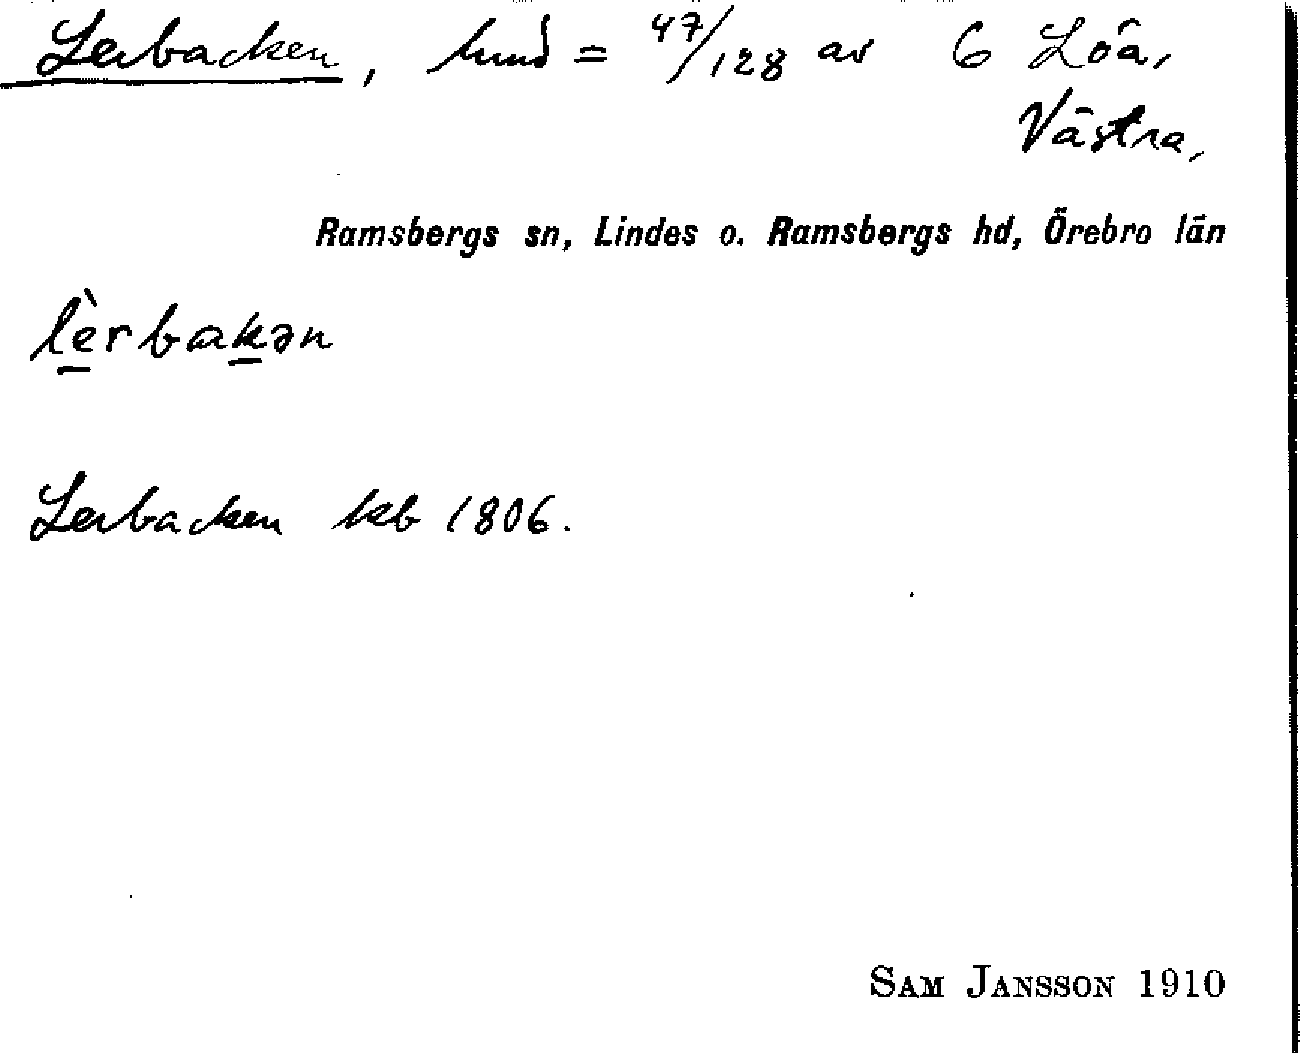 Lerbacken, hmd = 47/128 av 6 Löa,
Västra,
Ramsbergs sn, Lindes o. Ramsbergs hd, Örebro län
lèrbakən
Lerbacken kb 1806.
SAM JANSSON 1910